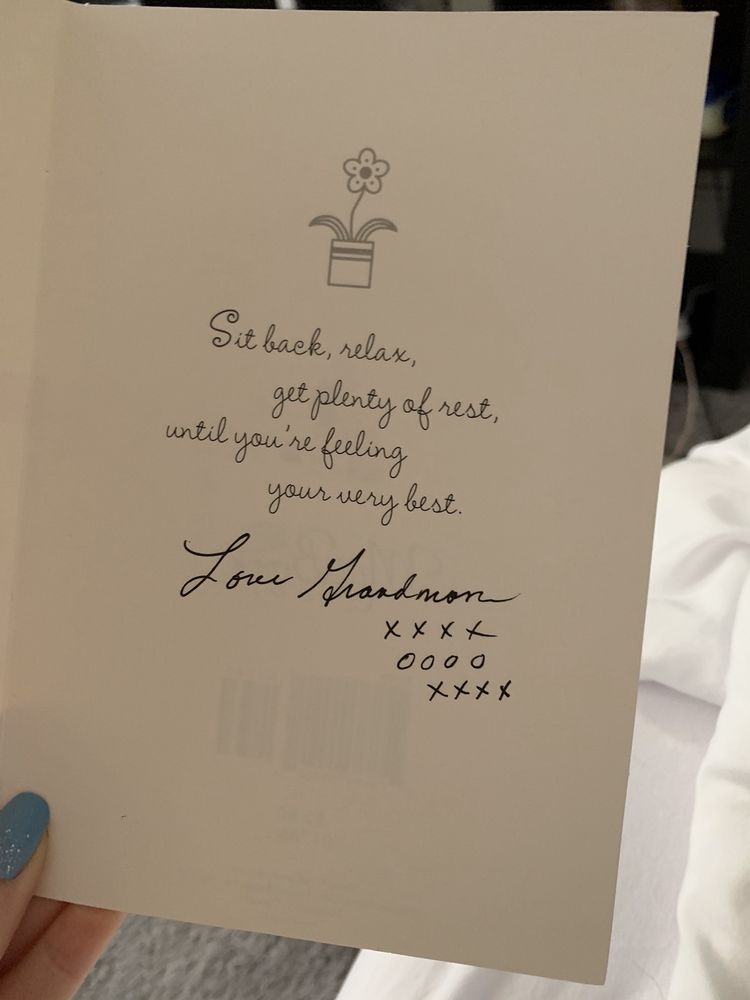 Sit back, relax,
get plenty of rest,
until you're feeling
your very best.
Love Grandmom
x x x x
o o o o
x x x x